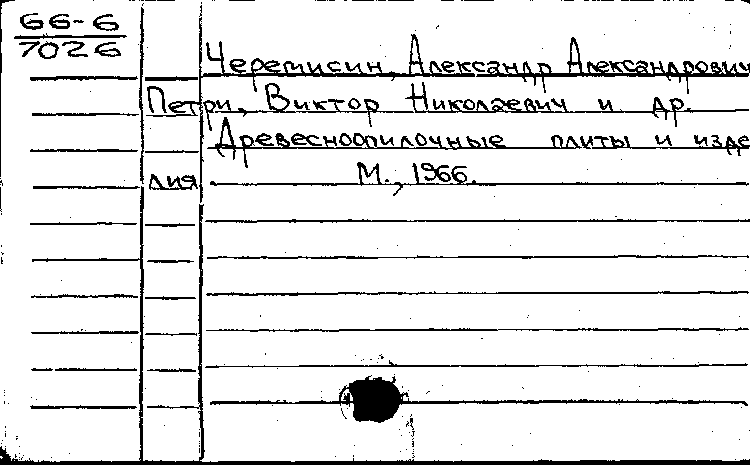 66-6
7026
Черемисин, Александр Александрович
Петри, Виктор Николаевич и др.
Древесноопилочные плиты и изде
лия. М., 1966.